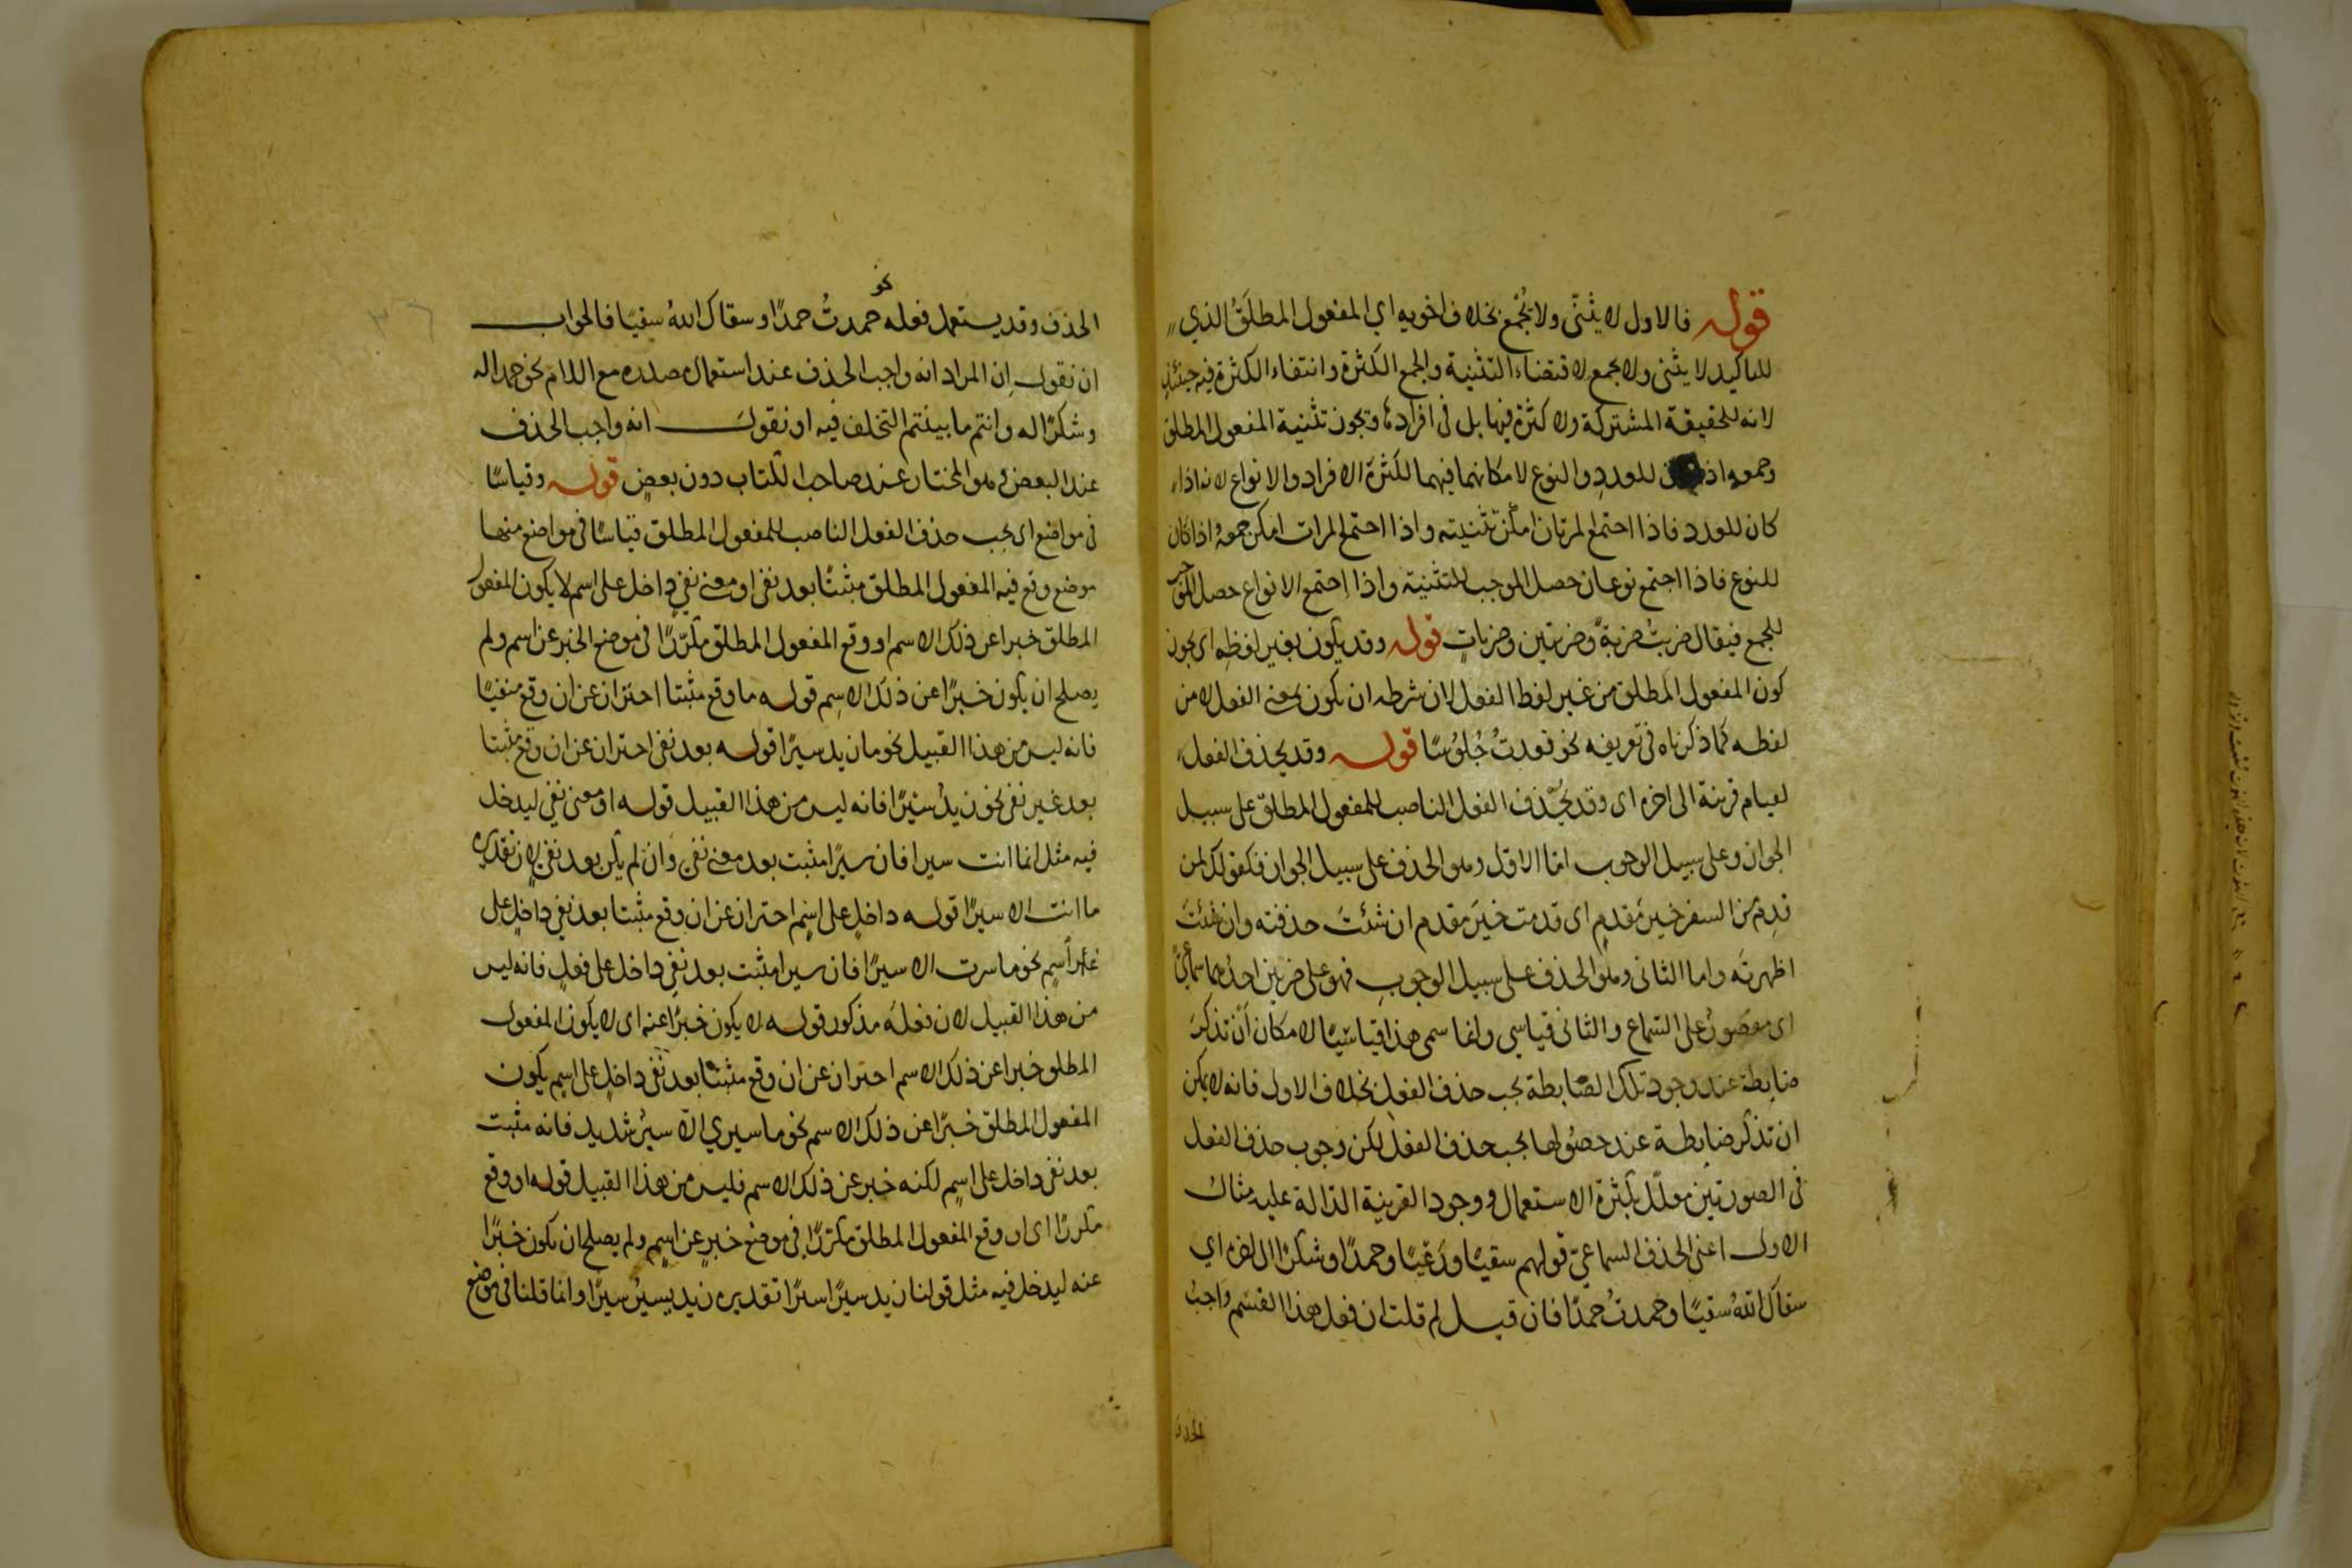 قوله فالاول لا يثنّى ولا يُجْمع بخلاف اخويه اي المفعول المطلقُ الذي
للتاكيد لا يثنى ولا يجمع لاقتضاء التثنية والجمع الكثرة وانتفاء الكثرة فيه حينئذٍ
لانه للحقيقة المشتركة ولا كثرة فيها بل فى افرادها ويجوز تثنية المفعول المطلق
وجمعه اذا للعدد والنوع لامكانهما فيهما لكثرة الافراد والانواع لانه اذا
كان للعدد فاذا اجتمع المرتان امكن تثنيته واذا اجتمع المرات امكن جمعهُ اذا كان
للنوع فاذا اجتمع نوعان حصل الموجب للتثنية واذا اجتمع الانواع حصل الموجب
للجمع فيقال ضربتُ ضربةً وضربتين وضرباتٍ قوله وقد يكون بغير لفظه اى يجوز
كون المفعول المطلق من غير لفظ الفعل لان شرطه ان يكون بمعنى الفعل لا من
لفظه كما ذكرناه فى تعريفه نحو قعدتُ جُلوُسًا قوله وقد يحذف الفعل
لقيام قرينة الى اخره اى وقد يُحْذف الفعل الناصب للمفعول المطلق على سبيل
الجواز وعلى سبيل الوجوب اما الاول وهو الحذف على سبيل الجواز فكقولك لمن
قدِم من السفر خيرَ مَقدمٍ اى قدمت خيَر مقدم ان شئتَ حذفته وان شئتَ
اظهرتَه واما الثانى وهو الحذف على سبيل الوجوبِ فهو على ضربين احدُهما سماعىٌّ
اى مقصورٌ على السَّماع والثانى قياسى وانما سمى هذا قياسيًا لامكان أنْ تذكرَ
ضابطة عند وجود تلك الضابطة يجب حذف الفعل بخلاف الاول فانه لا يمكن
ان تذكر ضابطة عند حصُولها يجب حذف الفعل لكن وجوب حذف الفعل
فى الصورتين معلّل بكثرة الاستعمال ووجود القرينة الدّالة عليه مثال
الاول اعنى الحذف السماعىّ قولهم سقيًا ورَعْيًا وحمدًا وشكرًا الى اخره اي
سقاك اللّهُ سقيًا وحمدتُ حمدًا فان قيل لم قلت ان فعل هذا القسْم واجبُ
الحذف
الحذف وقد يستعمل فعله نحو حمدتُ حمدًا وسقاك اللهُ سقيًا فالجواب
ان نقول اِن المراد انه واجب الحذف عند استعمال مصدره مع اللام نحو حمدا له
وشكرًا له وانتم ما بينتم التخلف فيه او نقولَ انه واجب الحذف
عند البعض وهو المختار عند صاحب الكتاب دون بعضٍ قوله وقياسًا
فى مواضع اى يجب حذف الفعل الناصب للمفعول المطلق قياسًا فى مواضع منها
موضع وقع فيه المفعول المطلق مثبتًا بعد نفى او معنى نفىٍ داخل على اسم لا يكون المفعول
المطلق خبرا عن ذلك الاسم او وقع المفعول المطلق مكرّرًا فى موضع الخبر عن اسم ولم
يصلح ان يكون خبرًا عن ذلك الاسِم قوله ما وقع مثبتا احتراز عن ان وقع منفيًا
فانه ليس من هذا القبيل نحو ما زيد سيرًا قوله بعد نفى احتراز عن ان وقع مثبتا
بعد غير نفى نحو زيدٌ سيْرًا فانه ليس من هذا القبيل قوله او معنى نفى ليدخل
فيه مثل انما انت سيرا فان سيرًا مثبت بعد معنى نفى وان لم يكن بعد نفىٍ لان تقديره
ما انت الا سيرًا قوله داخلٍ على اسمٍ احتراز عن ان وقع مثبتا بعد نفىٍ داخلٍ على
غير اسمٍ نحو ما سرت الا سيرًا فان سيرا مثبت بعد نفى داخل على فعلٍ فانه ليس
من هذا القبيل لان فعلَه مذكور قوله لا يكون خبرًا عنه اى لا يكون المفعول
المطلق خبرا عن ذلك الاسم احتراز عن ان وقع مثبتًا بعد نفى داخلٍ على اسمٍ يكون
المفعول المطلق خبرًا عن ذلك الاسم نحو ما سيري الّا سيرٌ شديد فانه مثبت
بعد نفى داخل على اسمٍ لكنه خبر عن ذلك الاسم فليس من هذا القبيل قوله او وقع
مكررًا اى او وقع المفعول المطلق مكررًا فى موضع خبرٍ عن اسمٍ ولم يصلح ان يكون خبرًا
عنه ليدخل فيه مثل قولنا زيد سيرًا سيرًا تقديره زيد يسيرُ سيرًا وانما قلنا فى موضع